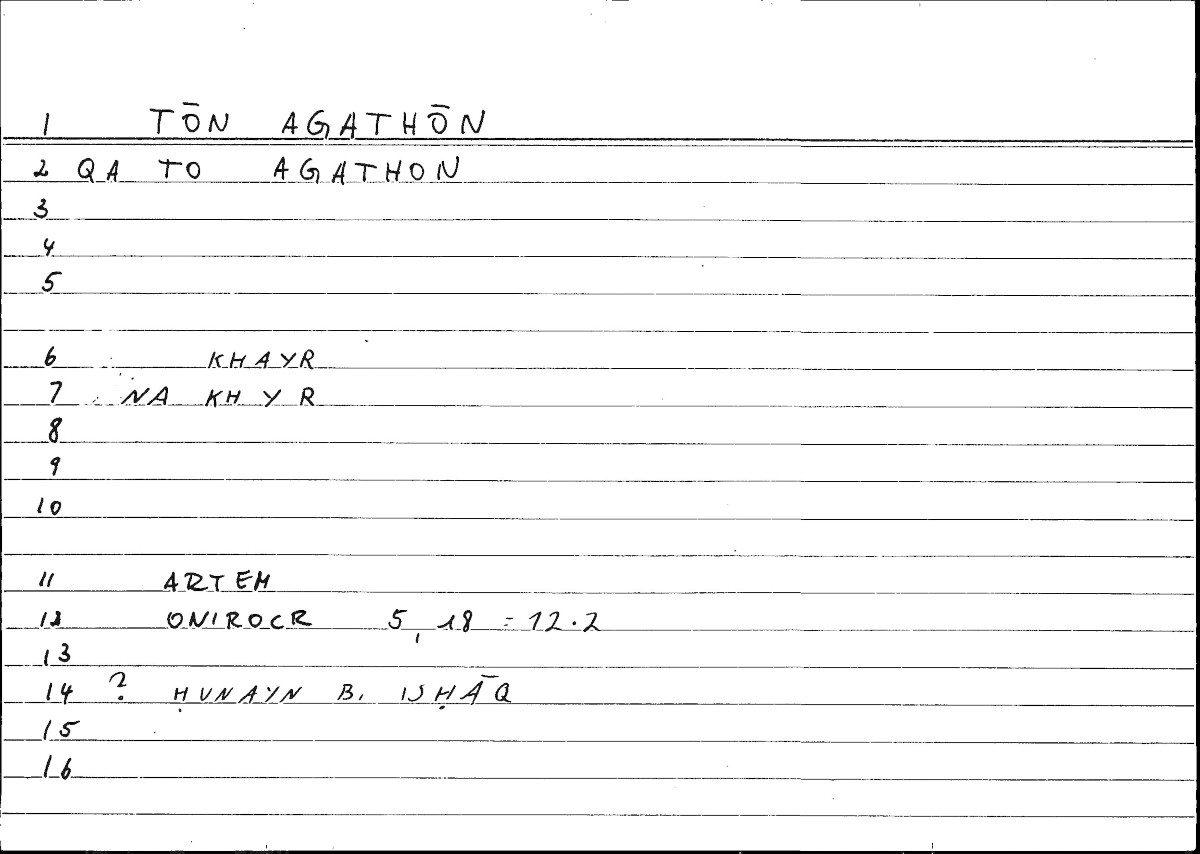 1 TŌN AGATHŌN
2 QA TO AGATHON
3
4
5
6 KHAYR
7 NA KH Y R
8
9
10
11 ARTEM
12 ONIROCR 5,18 = 12.2
13
14 ? ḤUNAYN B. ISḤĀQ
15
16